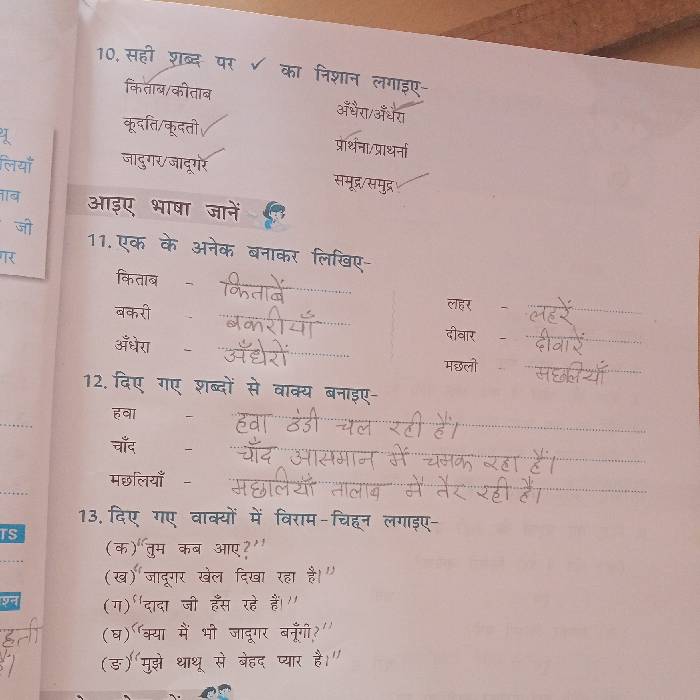 10. सही शब्द पर ✓ का निशान लगाइए-
किताब/कीताब
अँधैरा/अँधेरा
कूदति/कूदती ✓
प्रार्थना/प्राथर्ना
जादुगर/जादूगर
समूद्र/समुद्र ✓
आइए भाषा जानें
11. एक के अनेक बनाकर लिखिए-
किताब - किताबें
लहर - लहरें
बकरी - बकरीयाँ
दीवार - दीवारें
अँधेरा - अँधेरों
मछली - मछलियाँ
12. दिए गए शब्दों से वाक्य बनाइए-
हवा - हवा ठंडी चल रही हैं।
चाँद - चाँद आसमान में चमक रहा हैं।
मछलियाँ - मछलियाँ तालाब में तैर रही हैं।
13. दिए गए वाक्यों में विराम-चिह्न लगाइए-
(क) "तुम कब आए?"
(ख) "जादूगर खेल दिखा रहा है।"
(ग) "दादा जी हँस रहे हैं।"
(घ) "क्या मैं भी जादूगर बनूँगी?"
(ङ) "मुझे थाथू से बेहद प्यार है।"
थू
लियाँ
ताब
जी
गर
TS
प्रश्न